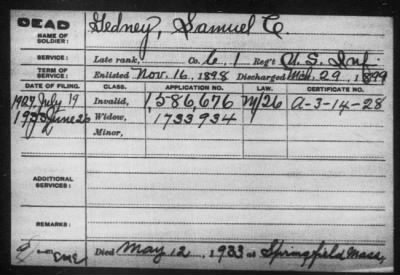 DEAD
NAME OF SOLDIER: Gedney, Samuel C.
SERVICE: Late rank, Co. G, 1 Reg't U.S. Inf.
TERM OF SERVICE: Enlisted Nov. 16, 1898 Discharged Mch. 29, 1899
DATE OF FILING. CLASS. APPLICATION NO. LAW. CERTIFICATE NO.
1927 July 19 Invalid, 1,586,676 A-3-14-28
1933 June 26 Widow, 1733934
Minor,
ADDITIONAL SERVICES:
REMARKS:
Died May 12, 1933 at Springfield Mass,